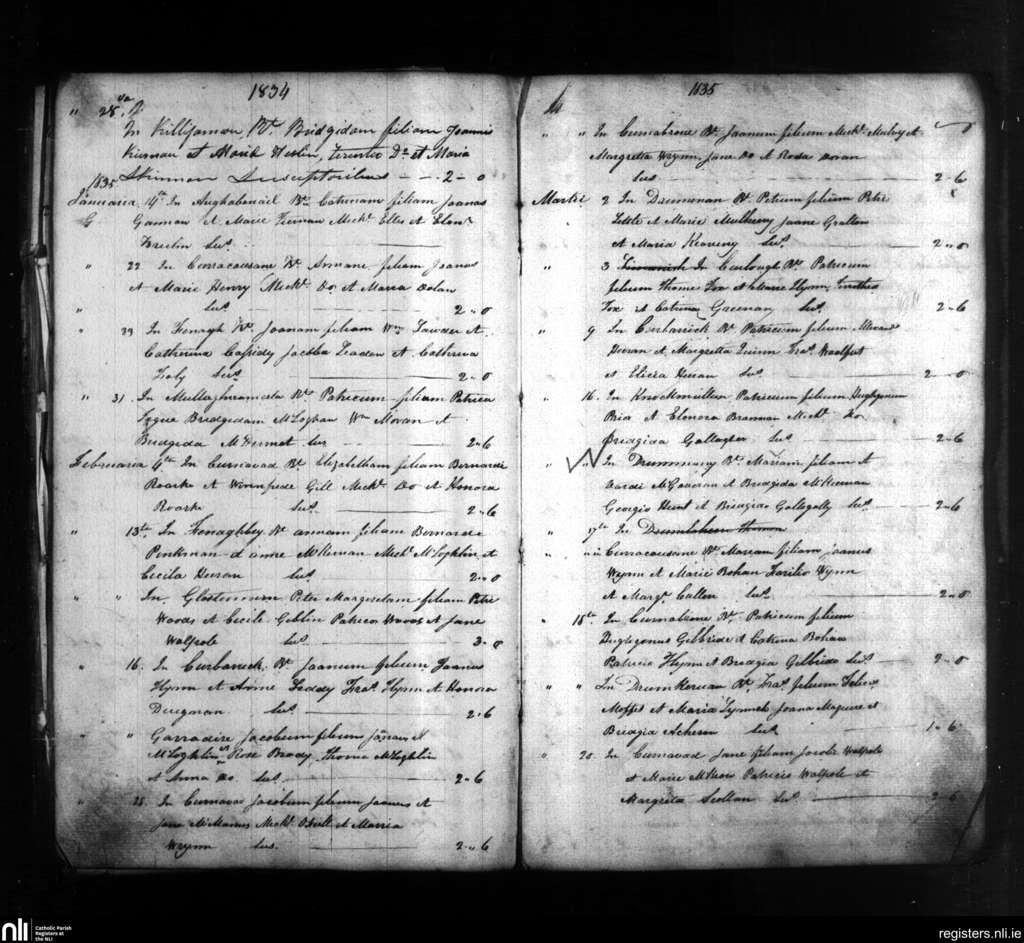 1834
" 28
In Killyamon Bt. Bridgidam filiam Joannis
Kiernan et Maria Heslin, Terentio Do et Maria
Skinnon Susceptoribus - - 2 - 0
1835
Januaria 4th In Aughabenail Bt. Caterinam filiam Joanas
Gannon et Marie Tiernan Michl. Ellis et Elonr.
Breslin Sus.
" 22. In Curracausane Bt. Annam filiam Joanas
et Marie Henry Michl. Do et Maria Dolan
" Sus. 2 - 0
" 29 In Fenagh Bt. Joanam filiam Wm. Lawder et
Cathrina Cassidy Jacoba Leaden et Cathrina
Foly Sus. 2 - 0
" 31. In Mullaghnameta Bt. Patricum filiam Patricia
Bridgedam McLoghan Wm. Moran et
Bridgida McDermot Sus 2 - 6
Februaria 4th In Curnavad Bt. Elizabetham filiam Bernardi
Roarke et Winnfrede Gill Michl. Do et Honora
Roarke Sus. 2 - 6
" 13th In Fenaghbey Bt annam filiam Bernarde
Penkman et anne McKernan Michl. McLoghlin et
Cecila Heeran Sus. 2 - 0
" " In Glostermin Peter Margeretam filiam Petri
Woods et Cecile Giblin Patricio Woods et Jane
Walpole Sus. 3 - 0
" 16. In Curbaruck Bt. Joanum filium Joanus
Flynn et Anne Leddy Fras. Flynn et Honora
Duignan Sus. 2 - 6
" Garradice Jacobum filium Joanus et
McLoghlin Rose Brady, Thome McLoghlin
et Anna Do Sus. 2 - 6
" 25. In Curnavad Jacobum filium Joanus et
Jane McManus Michl. et Marria
Wrynn Sus. 2 - 6
1835
" " In Curnabroan Bt. Joanum filium Michl. Mulvy et
Margretta Wrynn, Jane Do et Rosa Doran
Sus 2 - 6
Martii 2 In Drumenan Bt. Petrum filium Petri
Little et Marie Mulheny Joane Gralton
et Maria Keaveny Sus. 2 - 0
" 3 In Corlough Bt. Patricum
filium Thome Fox et Marie Flynn, Timotheo
Fox et Catrina Greenan Sus. 2 - 6
" 9 In Curbarick Bt. Patricum filium
Heeran et Margretta Quinn Fras. Woolfert
et Elicia Heeran Sus 2 - 0
" 16. In Knockmullen Patricum filium Hughonum
Bria et Elenora Brannan Michl. Do
Bridgida Gallagher Sus. 2 - 6
" " In Drummany Bt. Mariam filiam et
McGaueran et Bridgida McKiernan
Georgio Hunt et Bridgida Gallogally Sus. 2 - 6
" 17th In Drumlahen Thomam
" " Curracausane Bt. Mariam filiam Joanus
Wynn et Marie Bohan Wynn
et Margt. Cullen Sus. 2 - 0
" 18th. In Curnabrone Bt. Patricum filium
Hughgonus Gilbride et Catrina Bohan
Patricio Flynn et Bridgia Gilbride Sus. 2 - 0
" " In Drumkeruan Bt. Fras. filium
Moffet et Maria Lynnch Joana Maguire et
Bridgia Acheson Sus. 1 - 6
" 20. In Curnavad Jane filiam Jacobi Walpole
et Marie Patricio Walpole et
Margreta Scollan Sus. 2 - 6
nli
Catholic Parish
Registers at
the NLI
registers.nli.ie